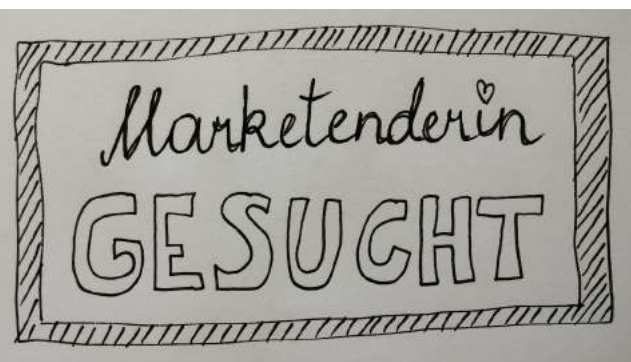 Marketenderin
GESUCHT